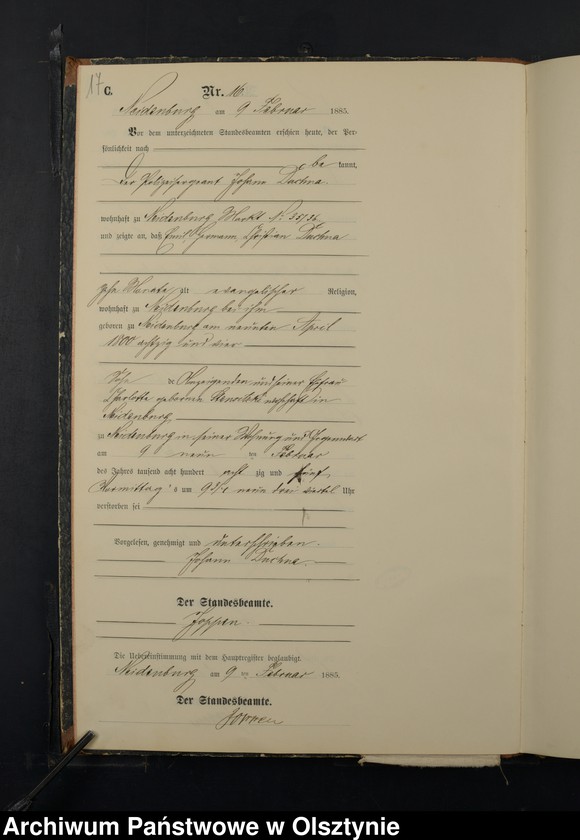 17 C. Nr. 16.
Neidenburg am 9 Februar 1885.
Vor dem unterzeichneten Standesbeamten erschien heute, der Per-
sönlichkeit nach
be kannt,
der Polizeisergeant Johann Duchna.
wohnhaft zu Neidenburg Markt N: 35/36
und zeigte an, daß Emil Hermann Christian Duchna
zehn Monate alt evangelischer Religion,
wohnhaft zu Neidenburg bei ihm
geboren zu Neidenburg am neunten April
1800 achtzig und vier
Sohn de Anzeigenden und seiner Ehefrau
Charlotte geborenen wohnhaft in
Neidenburg
zu Neidenburg in seiner Wohnung und Gegenwart
am 9 neun ten Februar
des Jahres tausend acht hundert acht zig und fünf,
Vormittag's um 9 3/4 neun drei viertel Uhr
verstorben sei
Vorgelesen, genehmigt und unterschrieben.
Johann Duchna.
Der Standesbeamte.
Die Uebereinstimmung mit dem Hauptregister beglaubigt.
Neidenburg am 9 ten Februar 1885.
Der Standesbeamte.
Archiwum Państwowe w Olsztynie